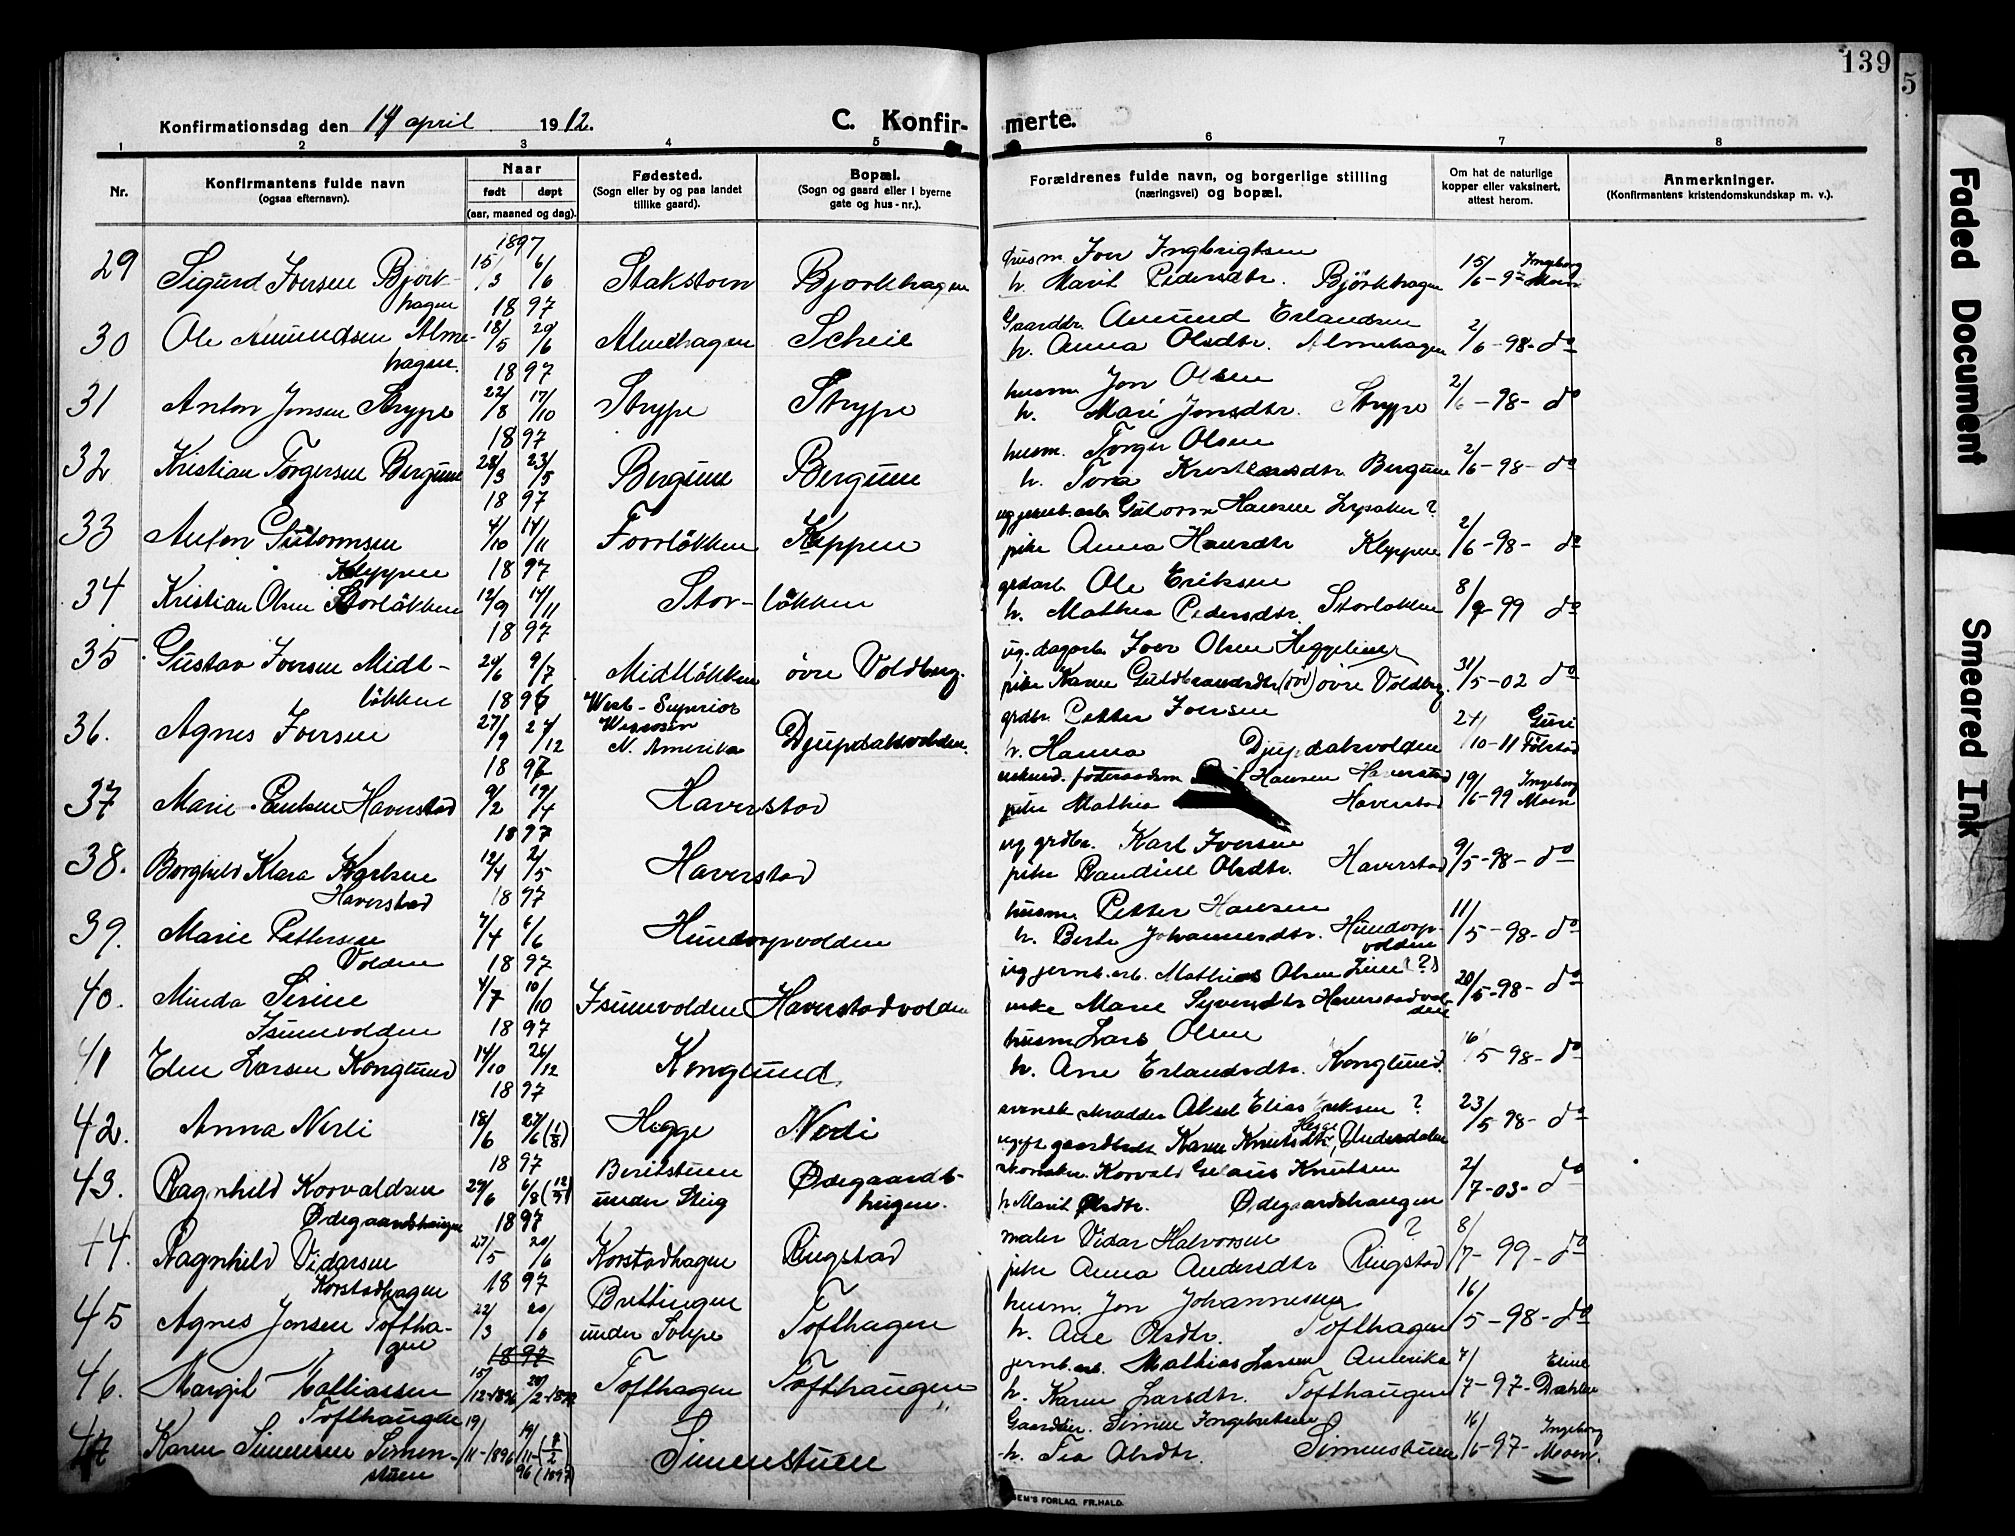 139
5
Faded Document
Smeared Ink
Konfirmationsdag den 14 april 1912.
C. Konfir-
merte.
1 2 3 4 5 6 7 8
Nr.
Konfirmantens fulde navn
(ogsaa efternavn).
Naar
født døpt
(aar, maaned og dag).
Fødested.
(Sogn eller by og paa landet
tillike gaard).
Bopæl.
(Sogn og gaard eller i byerne
gate og hus-nr.).
Forældrenes fulde navn, og borgerlige stilling
(næringsvei) og bopæl.
Om hat de naturlige
kopper eller vaksinert,
attest herom.
Anmerkninger.
(Konfirmantens kristendomskundskap m. v.).
1897
29 Sigurd Iversen Björk- 15/3 6/6 Stakstoen Bjørkhagen husm. Iver Ingbrigtsen
hagen h. Marit Pedersdtr. Björkhagen 15/6-97 Ingeborg Moen
1897
30 Ole Amundsen Alme- 18/5 29/6 Almehagen Scheie Gaardbr. Amund Erlandsen
hagen. h. Anna Olsdtr. Almehagen 2/6-98- do
1897
31 Anton Jonsen Strype 22/8 17/10 Strype Strype husm. Jon Olsen
h. Mari Jonsdtr. Strype 2/6-98- do
1897
32 Kristian Torgersen Bergum 28/3 23/5 Bergum Bergum husm. Torger Olsen
h. Tora Kristensdtr. Bergum 2/6-98- do
1897
33 Anton Gutormsen 4/10 14/11 Forrlökken Kleppen ug. jernb.arb. Gutorm Hansen Lysaker?
Kleppen pike Anna Hansdtr Kleppen 2/6-98- do
1897
34 Kristian Olsen Storlökken 12/9 14/11 Stor-lökken grdarb. Ole Eriksen
h. Mathea Pedersdtr. Storlökken 8/9-99 do
1897
35 Gustav Iversen Midt- 24/6 9/7 Midtlökken övre Voldberg. ug. dagarb. Iver Olsen Heggelien
lökken pike Karen Guldbrandsdtr övre Voldberg. 31/5-02 do
1896
36. Agnes Iversen 27/9 27/12 West-Superior
N. Amerika Djupdalsvolden. grdbr. Petter Iversen
h. Hanna Djupdalsvolden 24/10-11 Guri Fölstad
1897
37 Marie Paulsen Haverstad 9/2 19/4 Haverstad Hansen Haverstad
pike Mathea Haverstad 19/6-99 Ingeborg Moen
1897
38. Borghild Klara Karlsen 12/4 2/5 Haverstad ug grdbr. Karl Iversen
Haverstad pike Randine Olsdtr. Haverstad 9/5-98- do
1897
39. Marie Pettersen 7/4 6/6 Hundorpvolden husm. Petter Hansen
Volden h. Berte Johannesdtr. Hundorp-
volden 11/5-98- do
1897
40. Minda Sirine 4/7 10/10 Isumvolden Haverstadvolden ug jernb.arb. Mathias Olsen Lien (?)
Isumvolden enke Marie Syversdtr Haverstadvol-
den 20/5-98- do
1897
41 Elen Larsen Konglund 14/10 26/12 Konglund. husm Lars Olsen
h. Ane Erlandsdtr. Konglund. 16/5-98- do
1897
42. Anna Nerli 18/6 27/6 (1/8) Hegge Nerli svensk skrædder Aksel Elias Eriksen ?
ugift gaardbrdt Karen Knutsdtr, Hegge Undersdalen 23/5-98- do
1897
43. Ragnhild Korvaldsen 29/6 6/8 (12/9) Beritstuen
under Steig Ødegaards-
haugen. skomaker Korvald Knutsen
Ødegaardshaugen h. Marit Olsdtr. Ødegaardshaugen 2/7-03- do
1897
44. Ragnhild Vidarsen 27/5 20/6 Korstadhagen Ringstad maler Vidar Halvorsen ?
Korstadhagen pike Anna Andersdtr Ringstad 8/7-99- do
1897
45 Agnes Jonsen Toftha- 22/3 20/6 Buttingen
under Tolype Tofthagen husm. Jon Johannesen
gen h. Ane Olsdtr. Tofthagen 16/5-98- do
1897
46. Margit Mathiassen 15/12-1896 20/2-1897 Tofthagen Tofthaugen jernb.arb. Mathias Larsen Amerika
Tofthaugen h. Karen Larsdtr. Tofthaugen 7/7-97- Eline Dahlen
47 Karen Simensen Simen- 19/11-1896 19/11-96 (7/2 1897) Simenstuen Gaardbr. Simen Ingebretsen
stuen h. Tea Olsdtr. Simenstuen 16/6-97- Ingeborg Moen.
SEM'S FORLAG, FR.HALD.